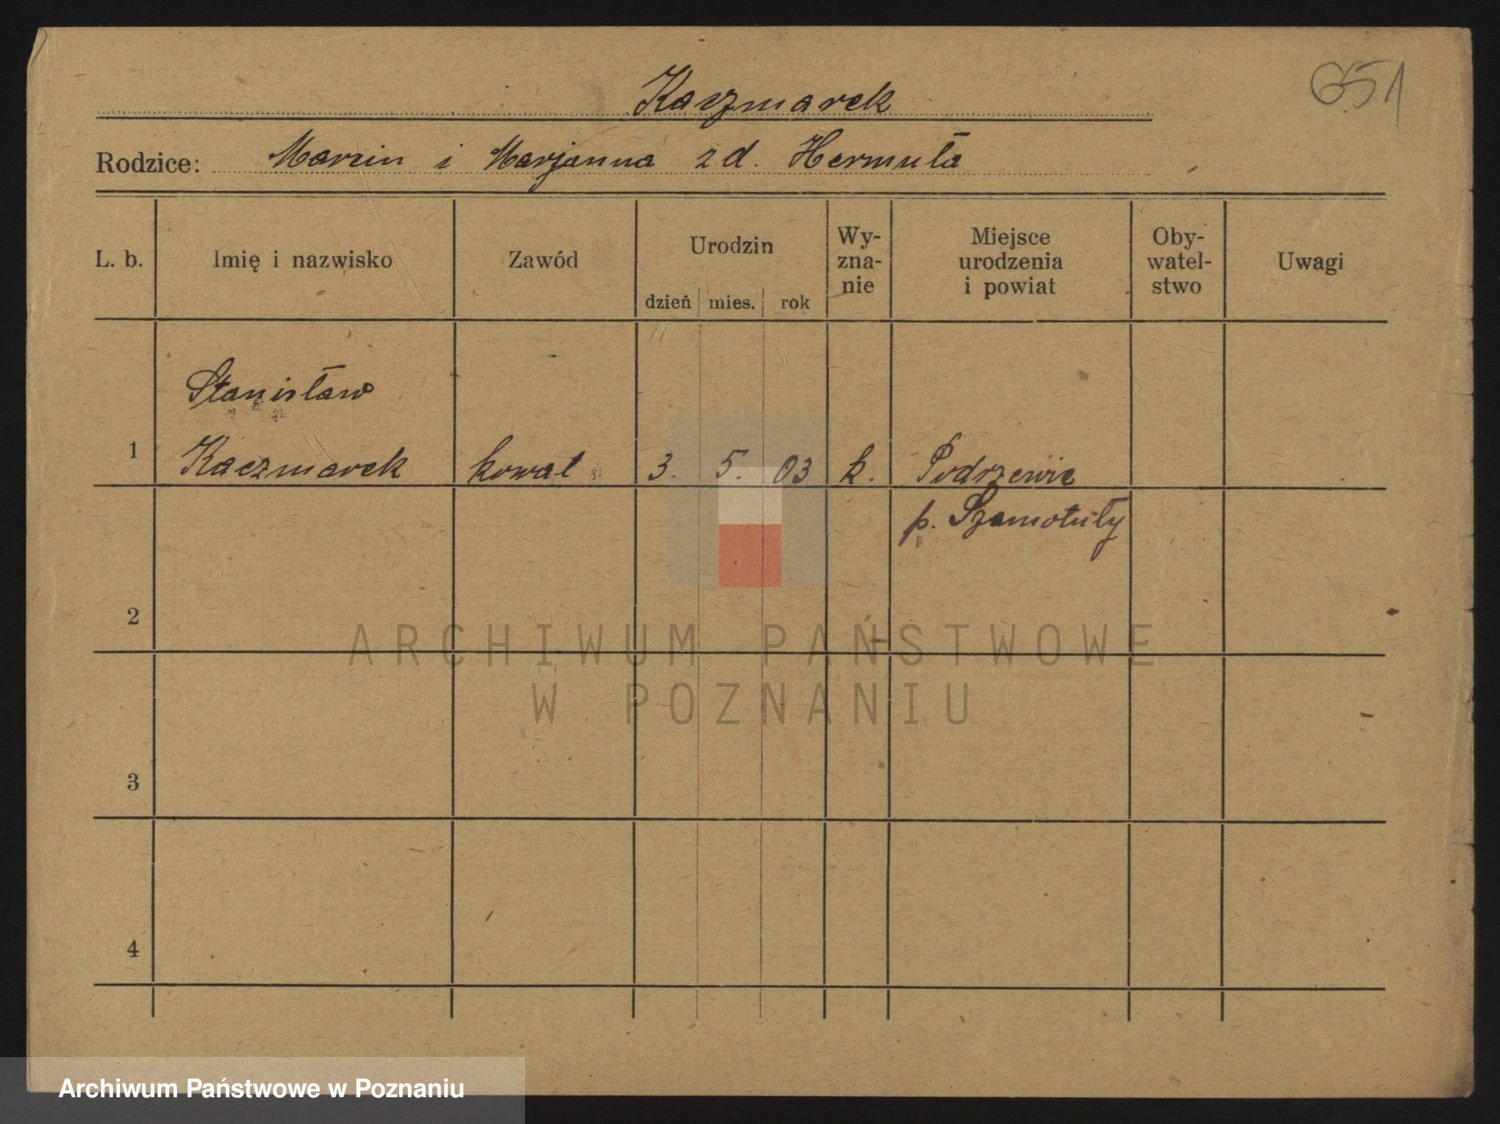 651
Kaczmarek
Rodzice: Marcin i Marjanna zd. Hermuła
L. b.
Imię i nazwisko
Zawód
Urodzin
dzień mies. rok
Wy-
zna-
nie
Miejsce
urodzenia
i powiat
Oby-
watel-
stwo
Uwagi
Stanisław
1 Kaczmarek kowal 3. 5. 03 k. Podrzewie
p. Szamotuły
2
ARCHIWUM PAŃSTWOWE
W POZNANIU
3
4
Archiwum Państwowe w Poznaniu